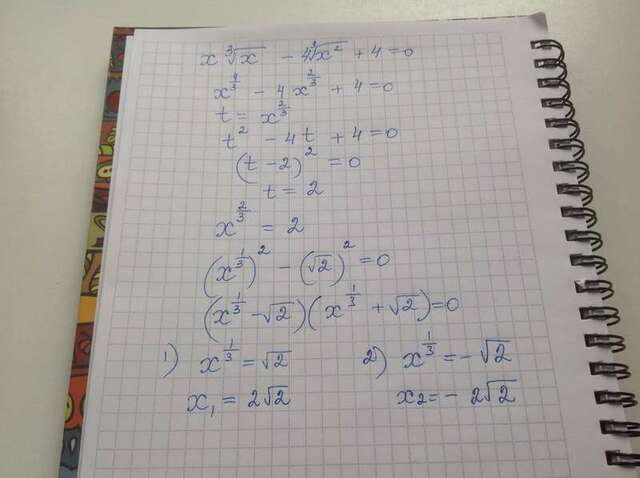 x ∛x − 4∛x² + 4 = 0
x^(4/3) − 4 x^(2/3) + 4 = 0
t = x^(2/3)
t² − 4t + 4 = 0
(t − 2)² = 0
t = 2
x^(2/3) = 2
(x^(1/3))² − (√2)² = 0
(x^(1/3) − √2)(x^(1/3) + √2) = 0
1) x^(1/3) = √2 2) x^(1/3) = − √2
x₁ = 2√2 x₂ = − 2√2